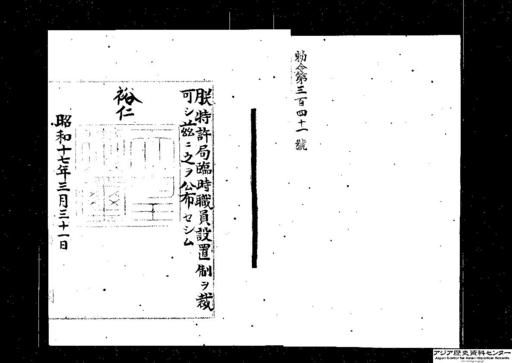 勅令第三百四十一號
朕特許局臨時職員設置制ヲ裁
可シ茲ニ之ヲ公布セシム
裕仁
昭和十七年三月三十一日
アジア歴史資料センター
Japan Center for Asian Historical Records